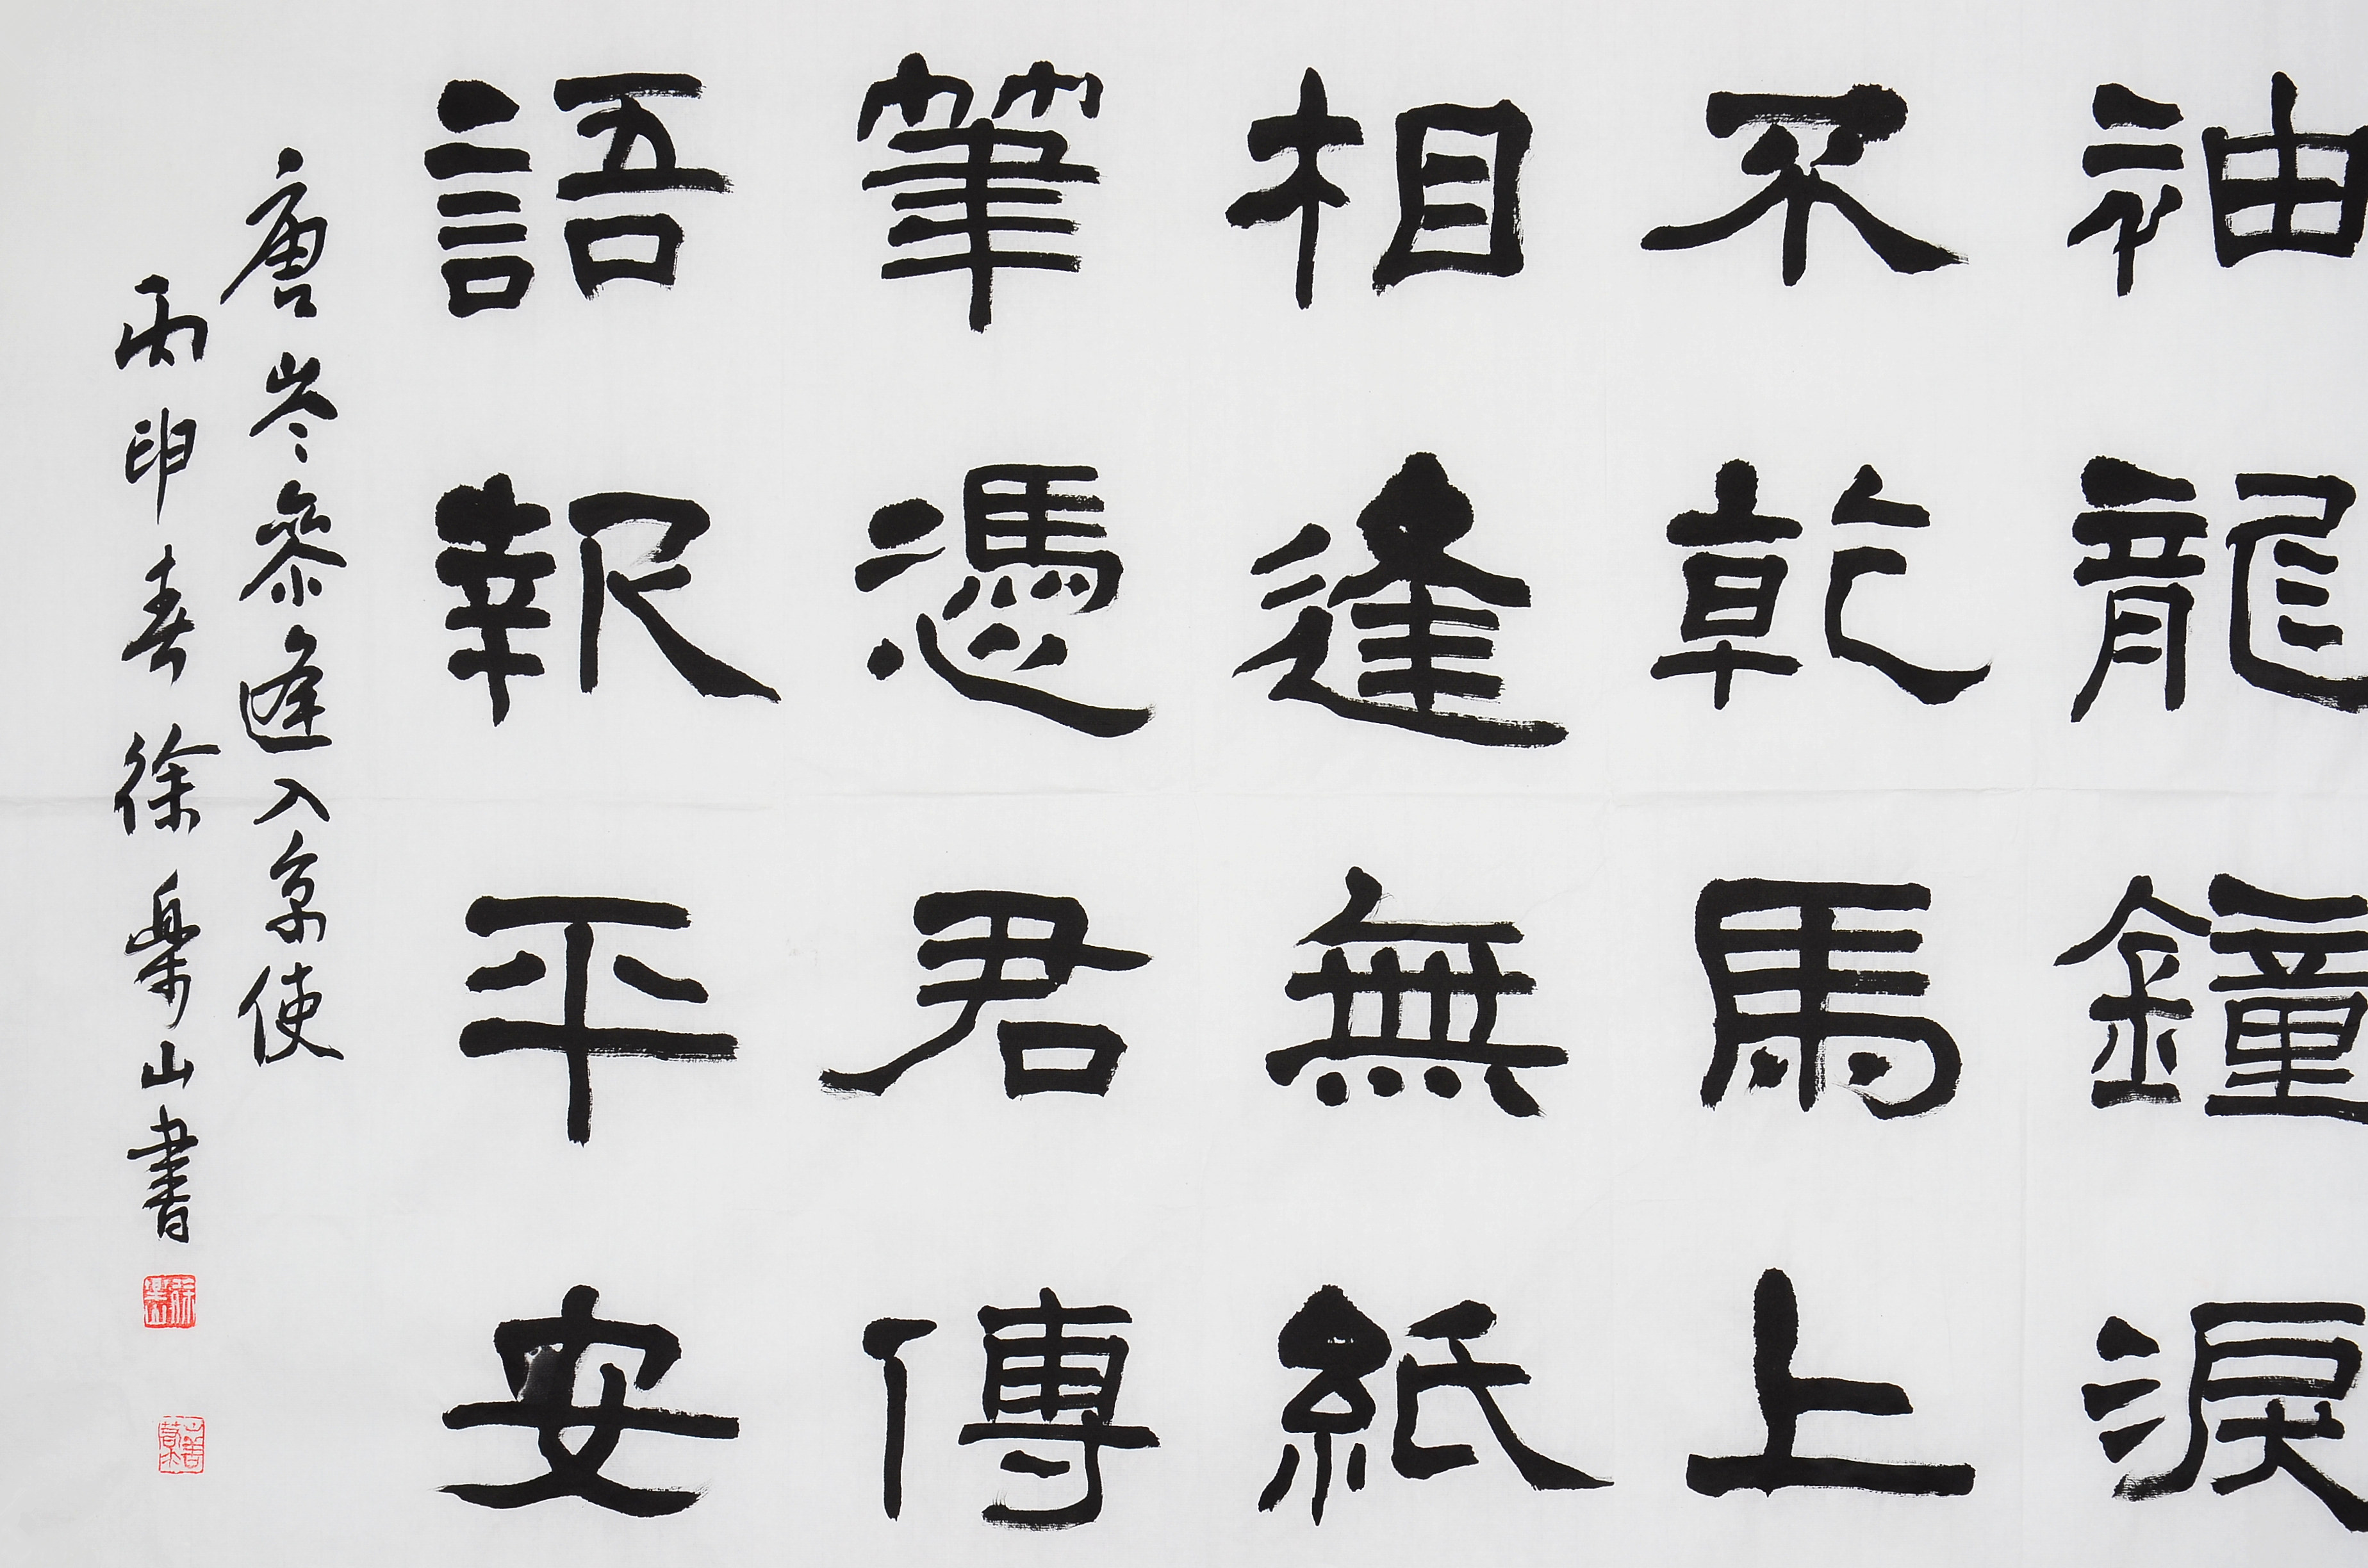 袖龍鐘淚
不乾馬上
相逢無紙
筆憑君傳
語報平安
唐岑參逢入京使
丙申春徐樂山書
徐樂山